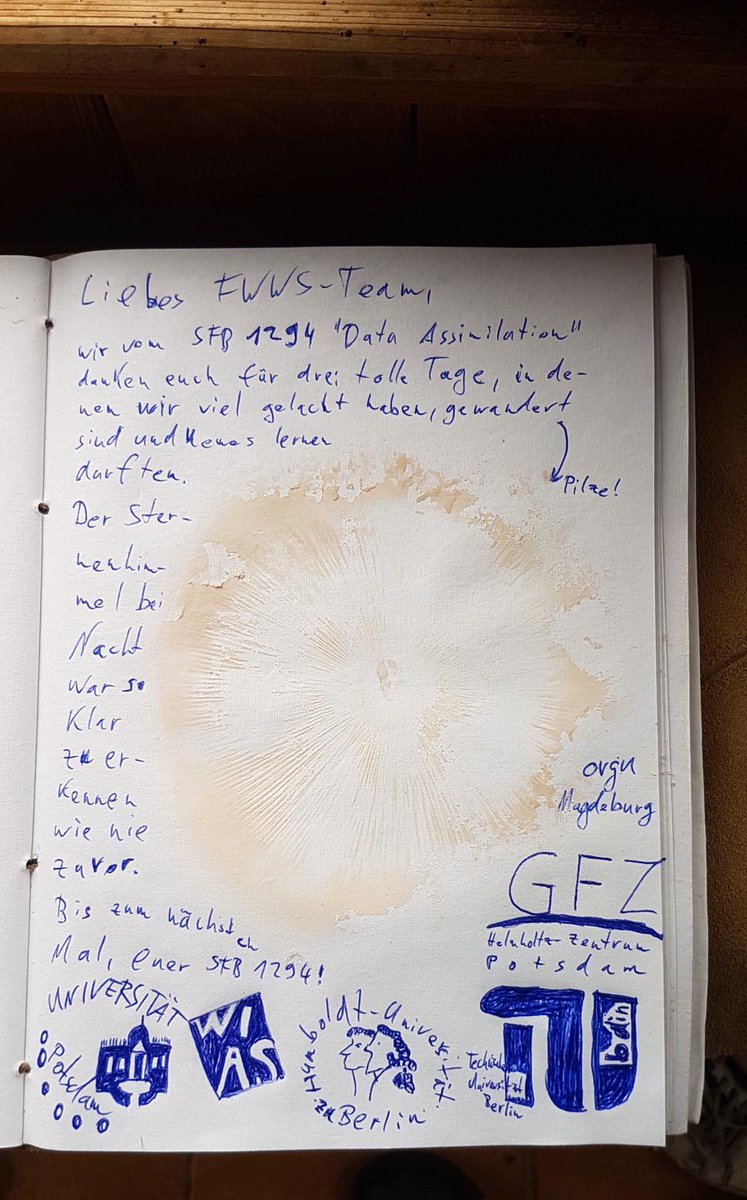 Liebes EWWS-Team,
wir vom SFB 1294 "Data Assimilation"
danken euch für drei tolle Tage, in de-
nen wir viel gelacht haben, gewandert
sind und Neues lernen
Pilze!
durften.
Der Ster-
nenhim-
mel bei
Nacht
war so
klar
zu er-
kennen
wie nie
zuvor.
Bis zum nächsten
Mal, euer SFB 1294!
orgu
Magdeburg
GFZ
Helmholtz-Zentrum
Potsdam
UNIVERSITÄT
Potsdam
WI
AS
Humboldt-Universität
zu Berlin
Technische
Universität
Berlin
TU
berlin